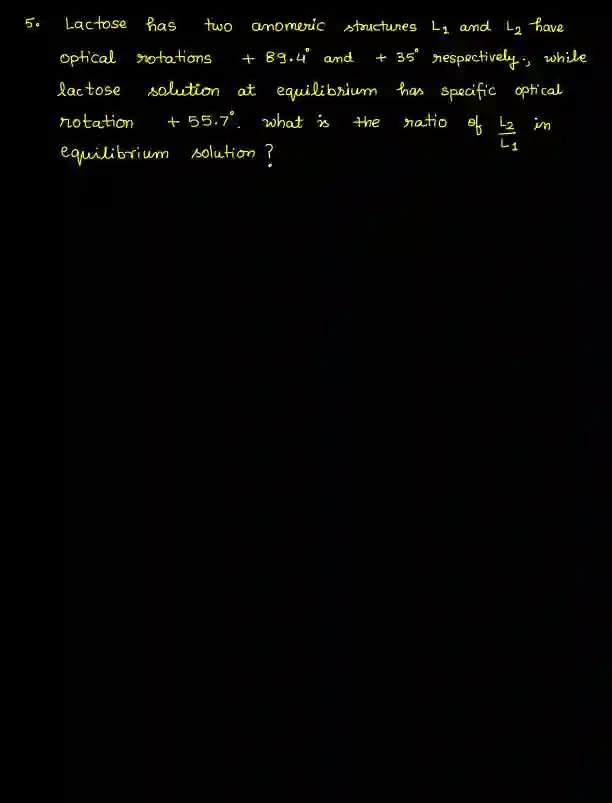 5. Lactose has two anomeric structures L1 and L2 have
optical rotations + 89.4° and + 35° respectively., while
lactose solution at equilibrium has specific optical
rotation + 55.7°. what is the ratio of L2/L1 in
equilibrium solution ?